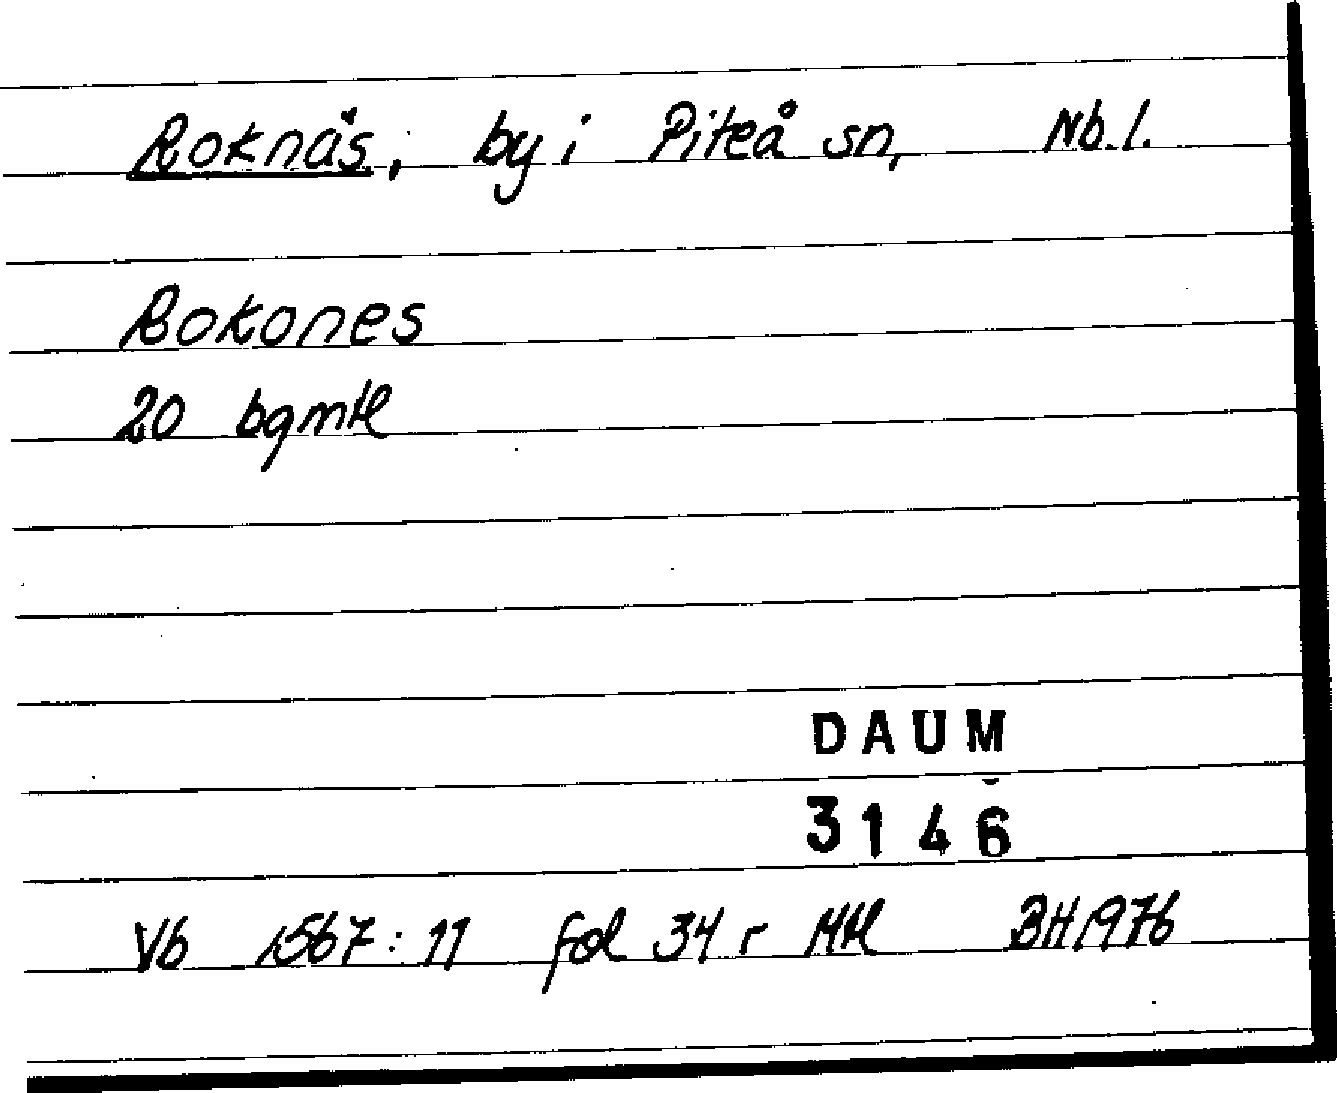 Roknäs, by i Piteå sn, Nb.l.
Rokones
20 bgmtl
DAUM
3146
Vb 1567:11 fol 34 r Mtl BH1976